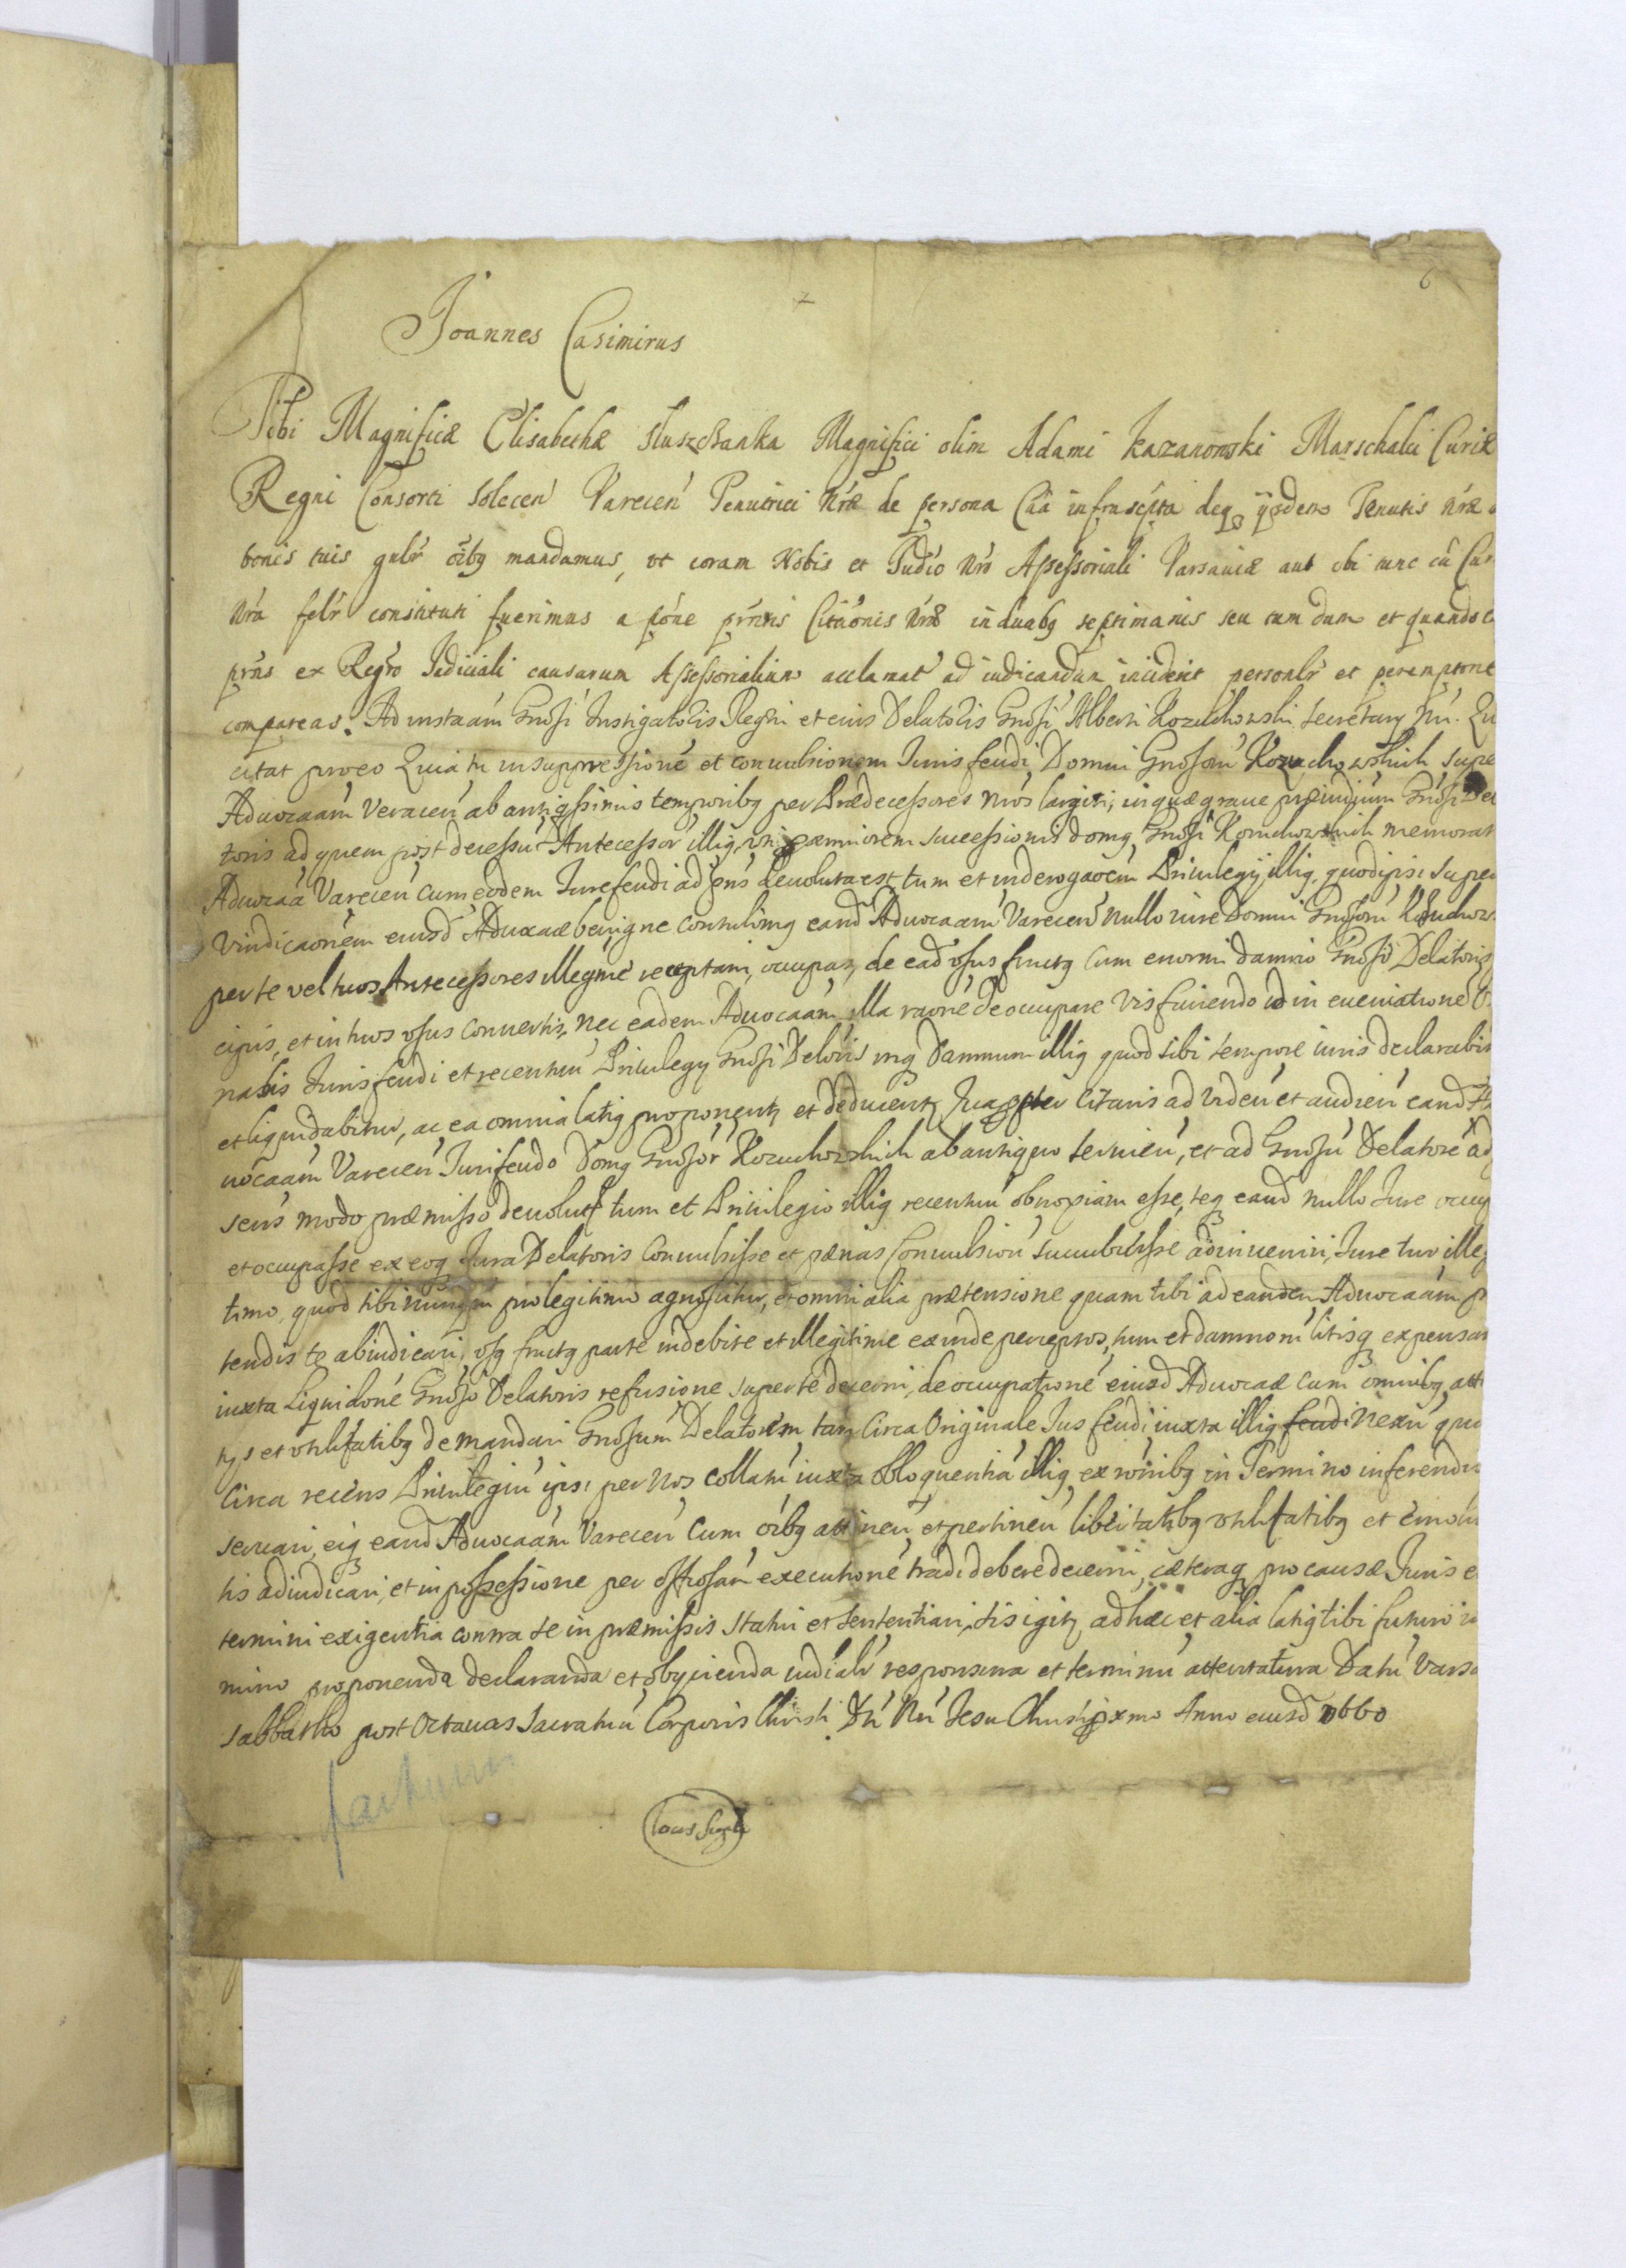 6
Joannes Casimirus
Tibi Magnificæ Elisabethæ Słuszczanka Magnifici olim Adami Kazanowski Marschalci Curiæ
Regni Consorti Solecen Varecen Tenutrici Nræ de persona Cãa infrascripta deq ijsdem Tenutis Nræ
bonis tuis gnlr oibq mandamus, vt coram Nobis et Judio Nro Assessoriali Varsaviæ aut vbi tunc cũ Cur
Nra felr constituti fuerimus a póne prntis Citaónis Nræ in duabq septimanis seu tum dum et quando
prns ex Regro Judiciali causarum Assessorialium acclamat ad iudicandum inciderit personlr et peremptorie
compareas. Ad instaãm Gnosi Instigatoris Regni et eius Delatoris Gnosi Alberti Kozuchowski Secretary Nri. Qu
citat pro eo Quia tu in suppressione et convulsionem Juris feudi Domui Gnosorũ Kozuchowskich supe
Advocaãm Varecen ab antiqssimis temporibq per Prædecessores Nros largiti, inquæ graue præiudiciũm Gnosi De
toris ad quem post decessũ Antecessor illiq, vti proxmiorem successionis domq Gnosr Kozuchowskich memorat
Advocaã Varecen cum eodem Jure feudi ad pns devoluta est tum et in derogaoem Privilegij illiq, quod ipsi super
Vindicaonem eiusd Advocaæ benigne contulimq eand Advocaãm Varecen nullo iure Domui Gnosorũ Kozuchow
per te vel tuos Antecessores illegme receptam, occupas, de ead vsus fructq cum enormi damno Gnosi Delatoris
cipis, et in tuos vsus convertis, nec eadem Advocaãm illa raone deoccupare vis
nalis Juris feudi et recentiũ Privilegy Gnosi Delõris inq Damnum illiq quod tibi tempore iuris declarabit
et liquidabitur, ac ea omnia latiq proponentq et deducentq Itaq pter citaris ad viden et audien eand Ad
uocaãm Varecen Juri feudo Domq Gnosor Kozuchowskich ab antiquo servien, et ad Gnosũ Delatorẽ ad
sens modo præmisso devolut tum et Privilegio illiq recentiũ obnoxiam esse, teq eand nullo Jure occup
et occupasse ex eoq Jura Delatoris Convulsisse et pænas Convulsion succubuisse adinveniri, Jure tuo illegi
timo, quod tibi nunqm pro legitimo agnoscitur, et omni alia prætensione quam tibi ad eandem Advocaãm p
tendis te abiudicari, vsq fructq parte indebite et illegitime exinde perceptos, tum et damnorũ litisq expensar
iuxta liquidonẽ Gnoso Delatoris refusione super te decerni, deoccupationẽ eiusd Advocaæ cum omnibq att
tys et vtilitatibq demandari Gnosum Delatorem tam circa Originale Jus feudi iuxta illiq feudi nexũ qua
Circa recens Privilegiũ ipsi per Nos collatũ iuxta obloquentiã illiq, ex roibq in Termino inferendis
servari, eiq eand Advocaãm Varecen cum oibq attinen et pertinen libertatibq vtilitatibq et emolu
tis adiudicari, et in possessione per offiosam executionẽ tradi debere decerni, cæteraq pro causæ Juris e
termini exigentia contra te in præmissis statui et sententiari, sis igitq ad hæc et alia latiq tibi futuro in
mino proponenda declaranda et obijcienda iudialr responsura et terminũ attentatura Datũ Varsa
Sabbatho post Octavas Sacratmi Corporis Christi Dni Nri Jesu Christi pxmo Anno eiusd 1660
Locus Sigilli